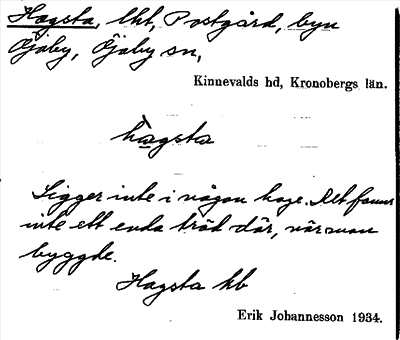 Hagsta, lht, Postgård, byn
Öjaby, Öjaby sn,
Kinnevalds hd, Kronobergs län.
hagsta
Ligger inte i någon hage. Det fanns
inte ett enda träd där, när man
byggde.
Hagsta kb
Erik Johannesson 1934.